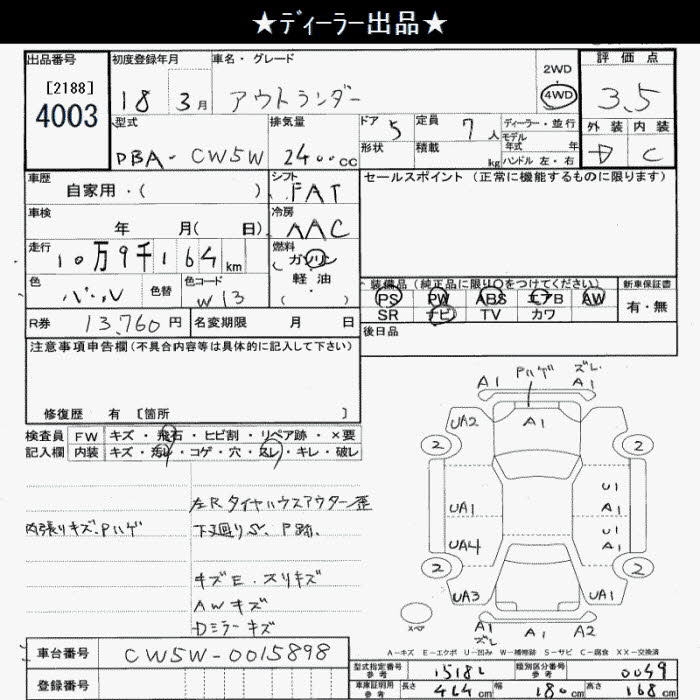 ★ディーラー出品★
出品番号 初度登録年月 車名・グレード 2WD 評価点
[2188]
4003 18 3月 アウトランダー 4WD 3.5
型式 排気量 ドア 5 定員 7人 ディーラー・並行 外装 内装
モデル年式 年
DBA-CW5W 2400cc 形状 積載 kg ハンドル 左・右 D C
車歴 シフト セールスポイント (正常に機能するものに限ります)
自家用・( ) FAT
車検 冷房
年 月( 日) AAC
走行 燃料
10万9千164km ガソリン
軽・油
( ・ )
色 色替 色コード 装備品 (純正品に限り○をつけてください) 新車保証書
パール W13 PS PW ABS エアB AW 有・無
SR ナビ TV カワ
R券 13,760円 名変期限 月 日 後日品
注意事項申告欄(不具合内容等は具体的に記入して下さい)
修復歴 有 [箇所 ]
検査員 FW キズ・飛石・ヒビ割・リペア跡・×要
記入欄 内装 キズ・汚レ・コゲ・穴・スレ・キレ・破レ
左Rタイヤハウスアウター歪
内張りキズ、Pハゲ 下廻りS、P跡、
キズE・スリキズ
AWキズ
Dミラーキズ
Pハゲ ズレ
A1 A1
UA2 A1
2 2
UA1 U1
A1
UA4 U1
A1
2 2
UA3 UA1
スペア A1 A1 A2
ズレ
A-キズ E-エクボ U-凹み W-補修跡 S-サビ C-腐食 XX-交換済
車台番号 CW5W-0015898 型式指定番号 参考 15181 類別区分番号 参考 0049
登録番号 車庫証明用 参考 長さ 464cm 幅 180cm 高さ 168cm